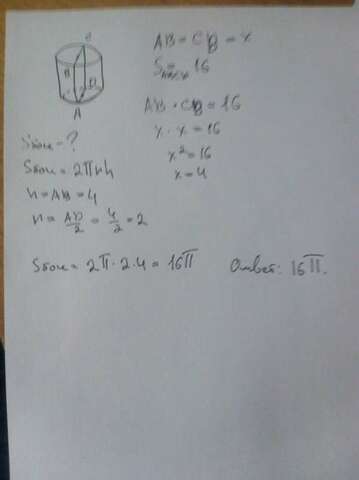 B
B
D
A
AB = CB = x
S = 16
AB · CB = 16
x · x = 16
x² = 16
x = 4
Sбок = ?
Sбок = 2πrh
h = AB = 4
r = AD/2 = 4/2 = 2
Sбок = 2π · 2 · 4 = 16π
Ответ: 16π.